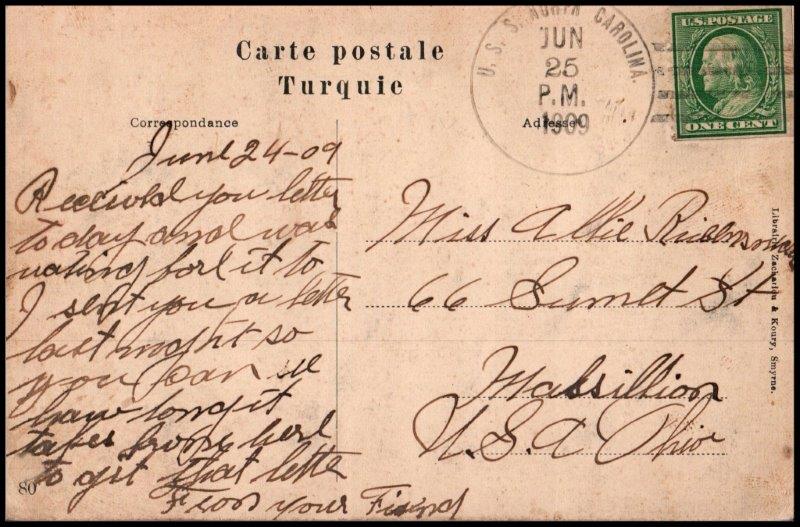 Carte postale
Turquie
Correspondance
Adresse
U. S. S. NORTH CAROLINA.
JUN
25
P.M.
1909
U.S. POSTAGE
ONE CENT
June 24-09
Received you letter
today and was
wating for it to
I sent you a letter
last night so
you can se
how long it
takes from here
to git that letter
From your Friend
80
Miss Allie
66 Sumet St
Massillion
U.S.A Ohio
Librairie Zachariou & Koury, Smyrne.